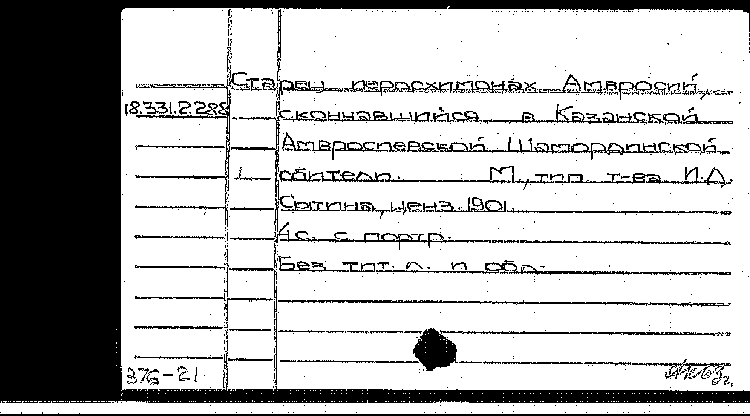 Старец иеросхимонах Амвросий,
18.331.2.288 скончавшийся в Казанской
Амвросиевской Шамординской
1 обители. М., тип. т-ва И.Д.
Сытина, ценз. 1901.
4 с. с портр.
Без тит. л. и обл.
376-21